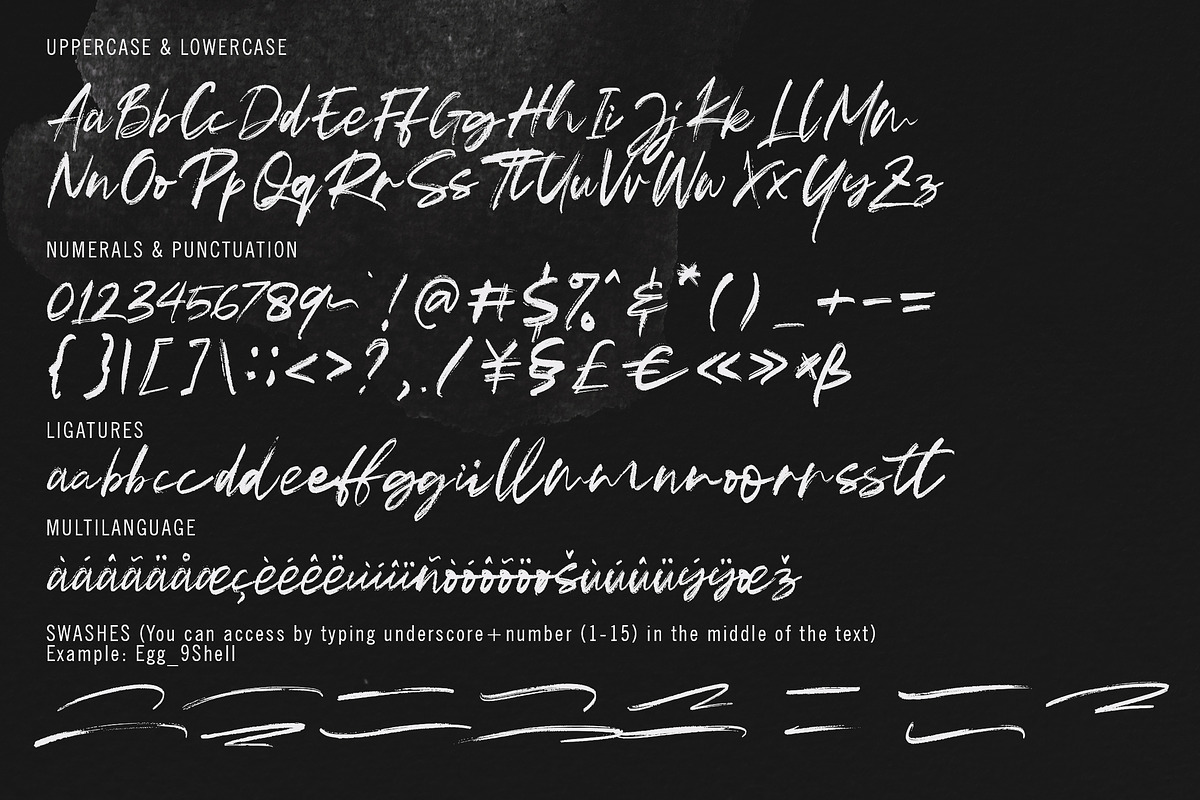 UPPERCASE & LOWERCASE
AaBbCcDdEeFfGgHhIiJjKkLlMm
NnOoPpQqRrSsTtUuVvWwXxYyZz
NUMERALS & PUNCTUATION
0123456789~`!@#$%^&*()_+-=
{}|[]\:;<>?,./¥§£€«»×ß
LIGATURES
aabbccddeeffggiillmmnnoorrsstt
MULTILANGUAGE
àáâãäåæçèéêëìíîïñòóôõöøšùúûüýÿœž
SWASHES (You can access by typing underscore+number (1-15) in the middle of the text)
Example: Egg_9Shell